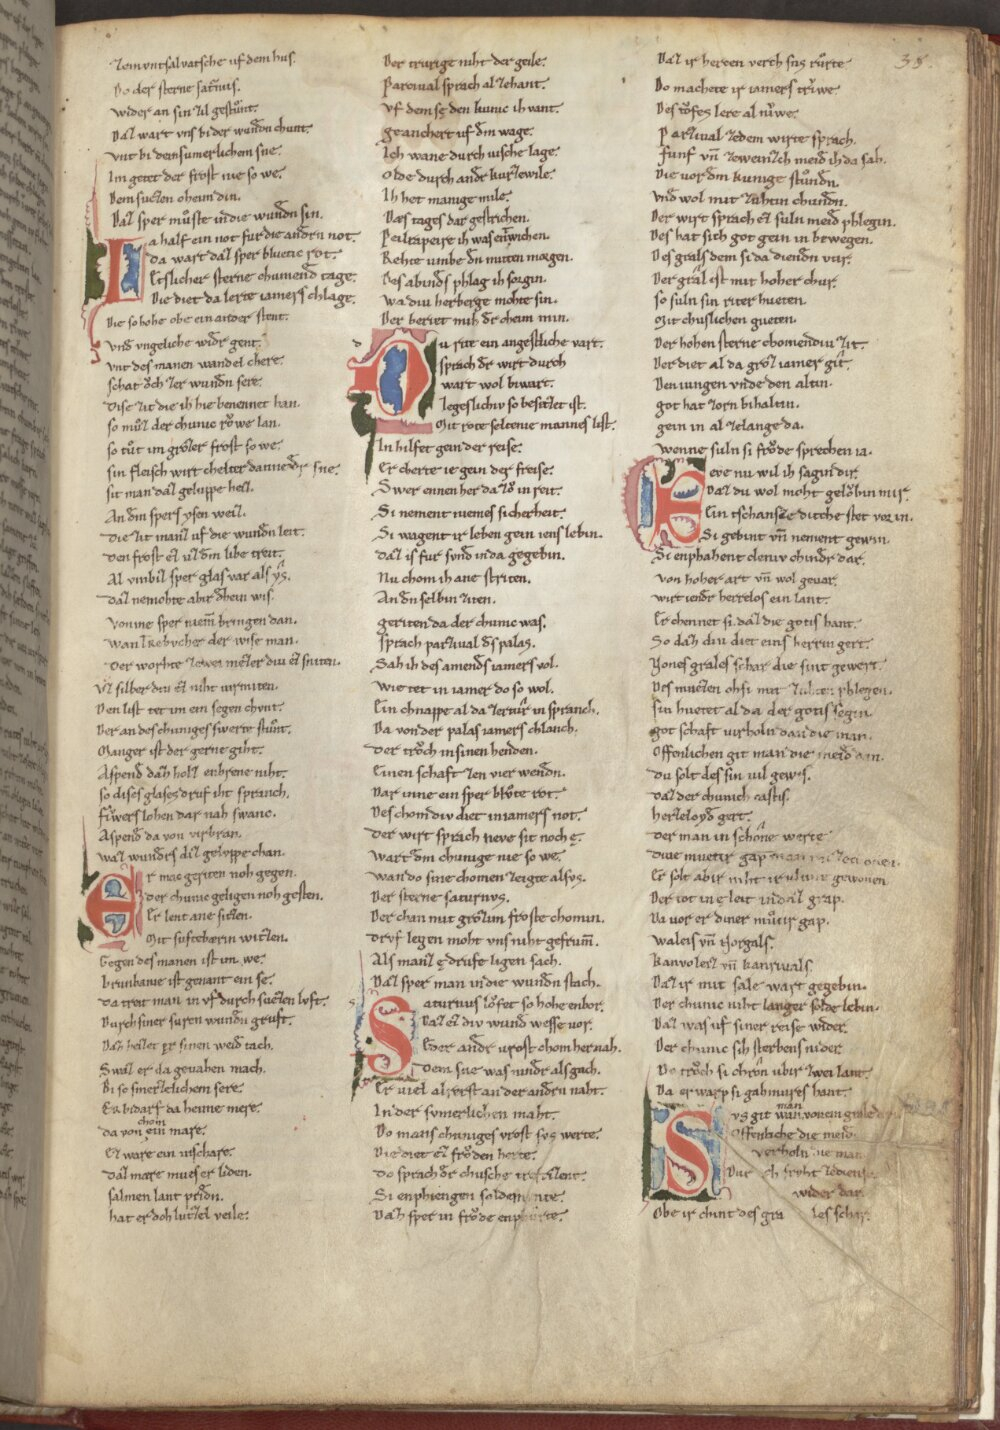 zemvntsalvatsche uf dem hus.
Do der sterne saturnus.
wider an sin zil gestůnt.
Daz wart vns bi der wundn chunt.
vnt bi dem sumerlichem sne.
Im getet der frost nie so we.
Dem suezen oheim din.
Daz sper můste in die wundn sin.
Da half ein not fur die andrn not.
da wart daz sper bluetic rot.
Etslicher sterne chomend tage.
Die diet da lerte iamers chlage.
Die so hohe obe ein ander stent.
vnd vngeliche widr gent.
vnt des manen wandel chere.
schat ŏch zer wundn sere.
Dise zit die ih hie benennet han.
so můz der chunic rŏwe lan.
so tůt im grôzer frost so we.
sin fleisch wirt chelter danne dr sne.
sit man daz geluppe heiz.
An dm spers ysen weiz.
die zit manz uf die wundn leit.
den frost ez uz dm libe treit.
Al vmbiz sper glas var als ys.
daz nemohte abir dhein wis.
von me sper niem bringen dan.
wan Trebvchet der wise man.
Der worhte zewei mezer div ez sniten.
vz silber div ez niht virmiten.
Den list tet im ein segen chvnt.
Der an des chuniges swerte stůnt.
Manger ist der gerne giht.
Aspend daz holz enbrene niht.
so discs glases druf iht spranch.
fiwers lohen dar nah swanc.
Aspend da von virbran.
waz wundrs diz geluppe chan.
Er mac geriten noh gegen.
der chunic geligen noh gesten.
Er lent ane sizzen.
Mit suftebærin witzen.
Gegen des manen ist im we.
brunbanie ist genant ein se.
da treit man in vf durch suezen luft.
Durch siner suren wundn gruft.
Daz heizet er sinen weid tach.
Swaz er da gevahen mach.
Bi so smerzlichem sere.
Er bidarf da heime mere.
da von chom ein mære.
Er wære ein vischære.
daz mære mues er liden.
salmen lant pridn.
hat er doh lutzel veile.
Der trurige niht der geile.
Parcival sprach al zehant.
vf dem se den kunic ih vant.
geanchert uf dm wage.
Ich wane durch vische lage.
Olde durch andr kurzewile.
Ih het manige mile.
Des tages dar gestrichen.
Peilrapeire ih was entwichen.
Rehte vmbe dn mitten morgen.
Des abinds phlag ih sorgin.
wa div herberge mohte sin.
Der beriet mih dr oheim min.
Du rite ein angestliche vart.
sprach dr wirt durch
wart wol biwart.
Iegeslichiv so besezet ist.
Mit rote seltenie mannes list.
In hilfet gein der reise.
Er cherte ie gein der freise.
Swer ennen her da zŏ in reit.
Si nement niemes sicherheit.
Si wagent ir leben gein iens lebin.
daz is fur synd in da gegebin.
Nu chom ih ane striten.
An dn selbin ziten.
geriten da der chunic was.
sprach parzival ds palas.
Sah ih des amends iamers vol.
wie tet in iamer do so wol.
Ein chnappe al da zer tur in spranch.
Da von der palas iamers chlanch.
der trŏch in sinen henden.
Einen schaft zen vier wendn.
Dar inne ein sper blvte rot.
Des chom div diet in iamers not.
der wirt sprach neve sit noch e.
wart dm chunige nie so we.
wan do sine chomen zeigte alsvs.
Der sterne saturnvs.
Der chan mit grôzim froste chomin.
drvf legen moht vns niht gefrum.
Als manz e drufe ligen sach.
Daz sper man in die wundn stach.
Saturnus lŏfet so hohe enbor.
Daz ez div wund wesse vor.
E der andr vrost chom her nah.
Dem sne was nindr als gach.
Er viel alrerst an der andrn naht.
In der symerlichen maht.
Do mans chuniges vrost svs werte.
Die diet ez frŏden herte.
do sprach dr chusche trefrizent.
Si enphiengen soldemente.
Daz sper in frŏde enpfŏrte.
Daz ir herzen verch sus rŭrte
Do machete ir iamers triwe.
Des tŏfes lere al niwe.
Parzival zedem wirte sprach.
funf vn zeweinzch meid ih da sah.
Die vor dm kunige stůndn.
vnd wol mit zuhtin chundn.
Der wirt sprach ez suln meid phlegin.
Des hat sich got gein in bewegen.
Des grals dem si da diendn vur.
Der gral ist mit hoher chur.
so suln sin riter hueten.
Mit chuslichen gueten.
Der hohen sterne chomendiu zit.
Der diet al da grôz iamer git.
Den iungen vnde den altin.
got hat zorn bihaltin.
gein in al zelange da.
wenne suln si frŏde sprechen ia.
Neve nu wil ih sagin dir.
Daz du wol moht gelŏbin mir.
Ein tschanze dicche stet vor in.
Si gebint vn nement gewin.
Si enphahent cleniv chindr dar.
von hoher art vn wol gevar.
wirt iendr herrelos ein lant.
Er chennet si daz die gotis hant.
So daz div diet eins herrin gert.
Vones grales schar die sint gewert.
Des muezen ohsi mit zuhten phlegen.
sin huetet al da der gotis segin.
got schaft virholn dan die man.
Offenlichen git man die meid dan.
du solt des sin vil gewis.
daz der chunich castis.
herzeloyd gert.
der man in schône werte
diue mueter gap man
Er solt abir niht ir minne gewonen
Der tot in e leit in daz grap.
Da vor er diner můtir gap.
waleis vn norgals.
kanvoleiz vn kanrivals.
Daz ir mit sale wart gegebin.
Der chunic niht langer solde lebin.
Daz was uf siner reise wider.
Der chunic sih sterbens nider.
Do trŏch si chron ubir zwei lant.
Da erwarp si gahmuretes hant.
Sus git man vonem grale dan
Offentliche die meid.
verholn die man.
Dur ch fruht zediens
wider dar.
Obe ir chint des gra les schar.